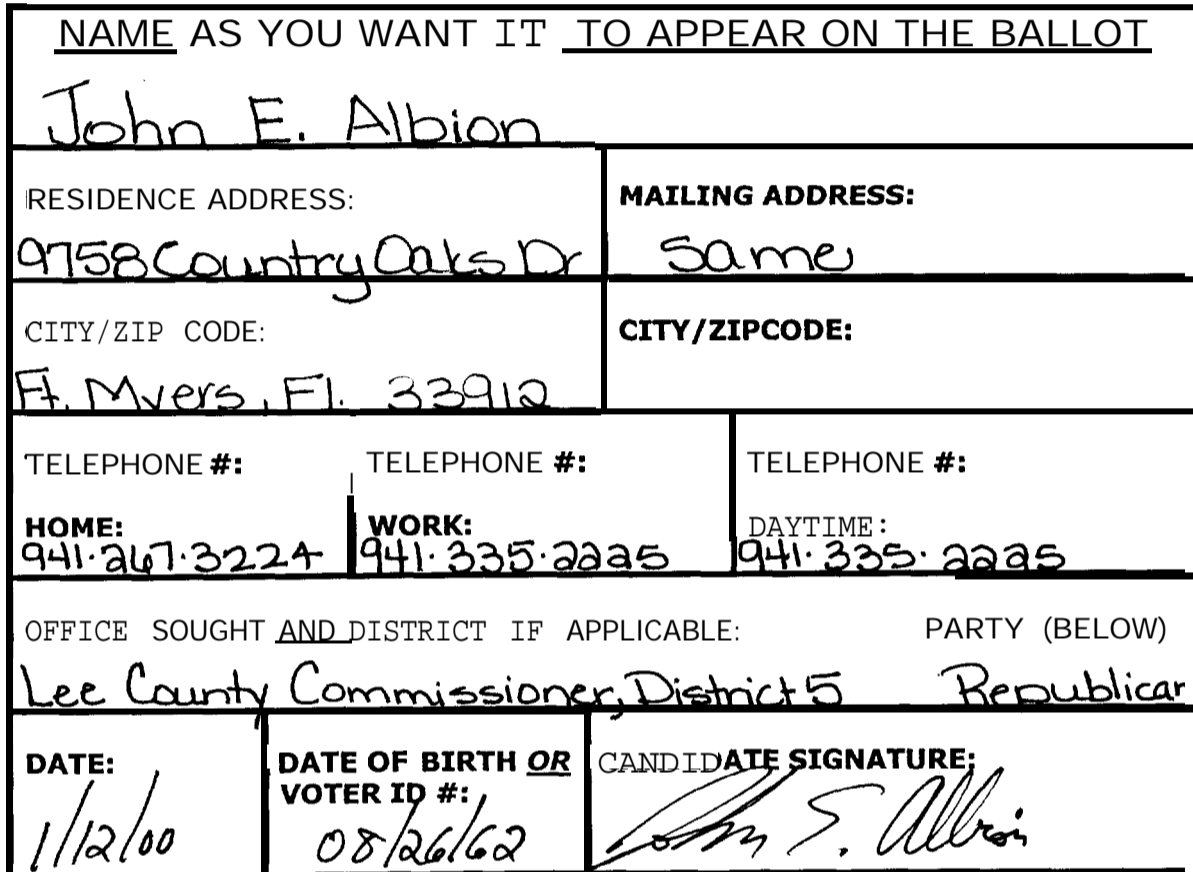 NAME AS YOU WANT IT TO APPEAR ON THE BALLOT
John E. Albion
RESIDENCE ADDRESS:
9758 Country Oaks Dr
MAILING ADDRESS:
Same
CITY/ZIP CODE:
Ft. Myers, Fl. 33912
CITY/ZIPCODE:
TELEPHONE #:
HOME:
941.267.3224
TELEPHONE #:
WORK:
941.335.2225
TELEPHONE #:
DAYTIME:
941.335.2225
OFFICE SOUGHT AND DISTRICT IF APPLICABLE: PARTY (BELOW)
Lee County Commissioner, District 5 Republican
DATE:
1/12/00
DATE OF BIRTH OR
VOTER ID #:
08/26/62
CANDIDATE SIGNATURE:
John E. Albion